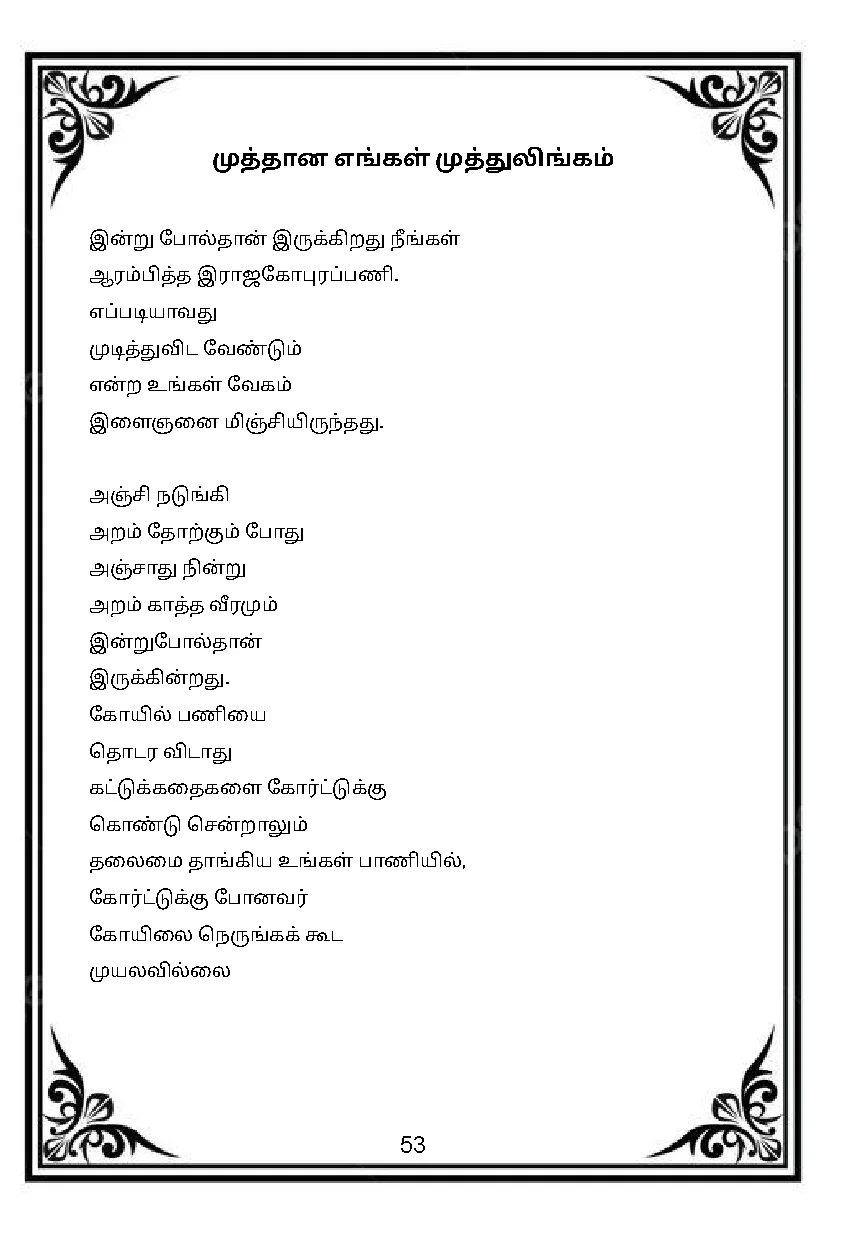 முத்தான எங்கள் முத்துலிங்கம்
இன்று போல்தான் இருக்கிறது நீங்கள்
ஆரம்பித்த இராஜகோபுரப்பணி.
எப்படியாவது
முடித்துவிட வேண்டும்
என்ற உங்கள் வேகம்
இளைஞனை மிஞ்சியிருந்தது.
அஞ்சி நடுங்கி
அறம் தோற்கும் போது
அஞ்சாது நின்று
அறம் காத்த வீரமும்
இன்றுபோல்தான்
இருக்கின்றது.
கோயில் பணியை
தொடர விடாது
கட்டுக்கதைகளை கோர்ட்டுக்கு
கொண்டு சென்றாலும்
தலைமை தாங்கிய உங்கள் பாணியில்,
கோர்ட்டுக்கு போனவர்
கோயிலை நெருங்கக் கூட
முயலவில்லை
53